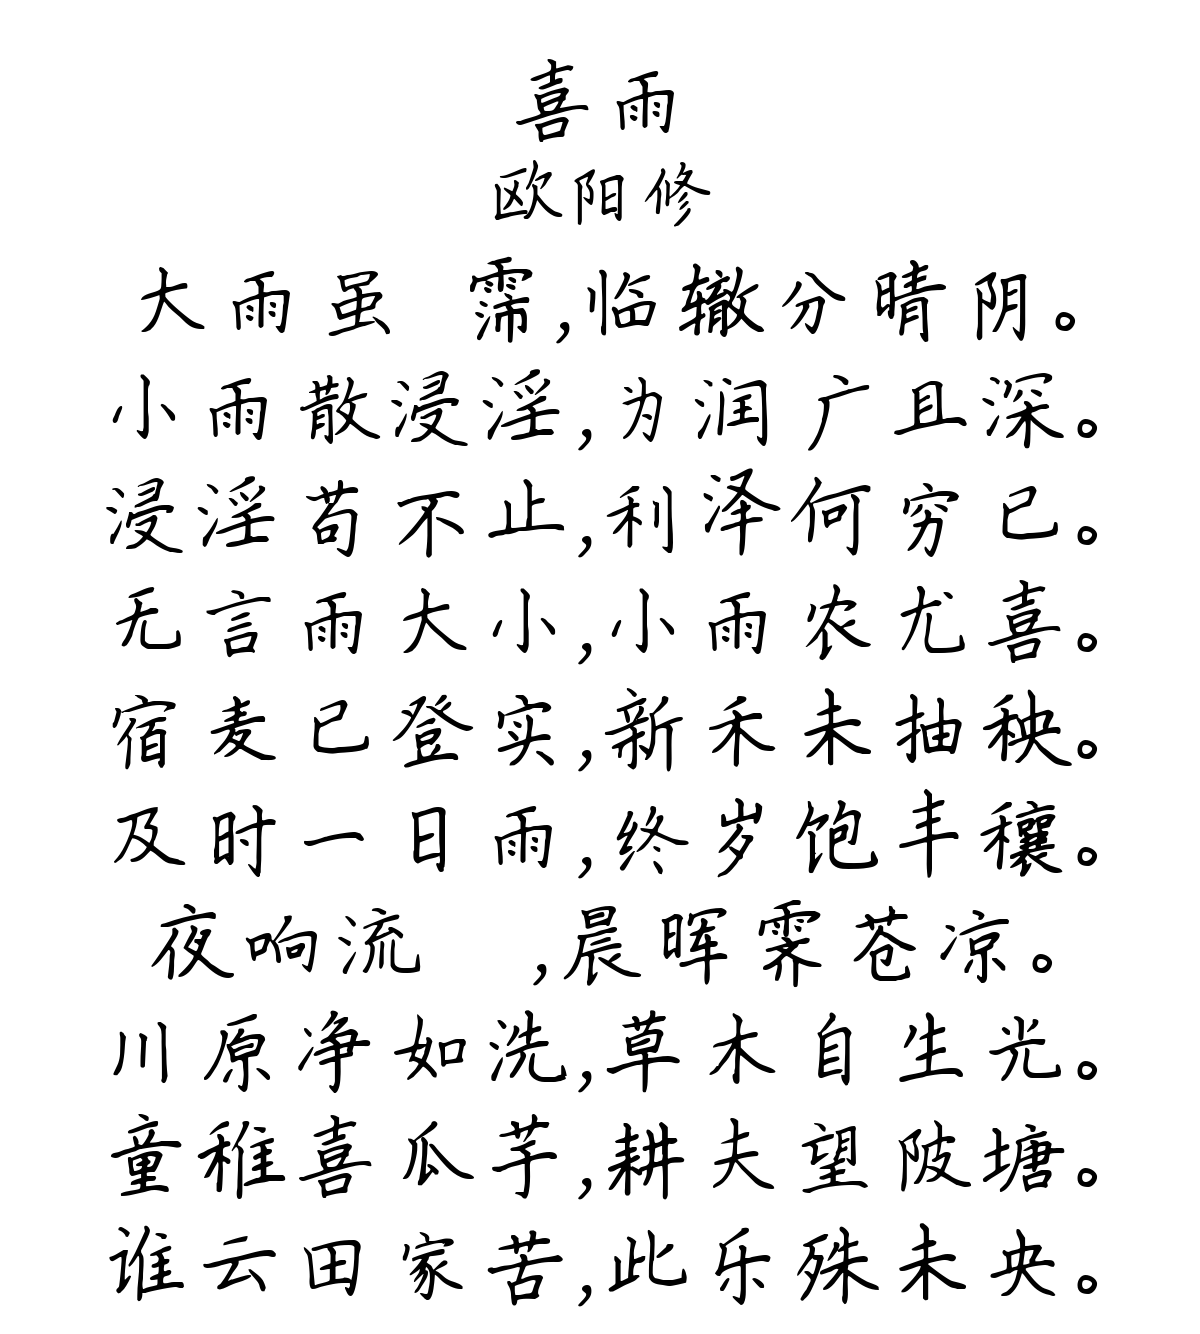 喜雨
欧阳修
大雨虽 霈,临辙分晴阴。
小雨散浸淫,为润广且深。
浸淫苟不止,利泽何穷已。
无言雨大小,小雨农尤喜。
宿麦已登实,新禾未抽秧。
及时一日雨,终岁饱丰穰。
夜响流 ,晨晖霁苍凉。
川原净如洗,草木自生光。
童稚喜瓜芋,耕夫望陂塘。
谁云田家苦,此乐殊未央。